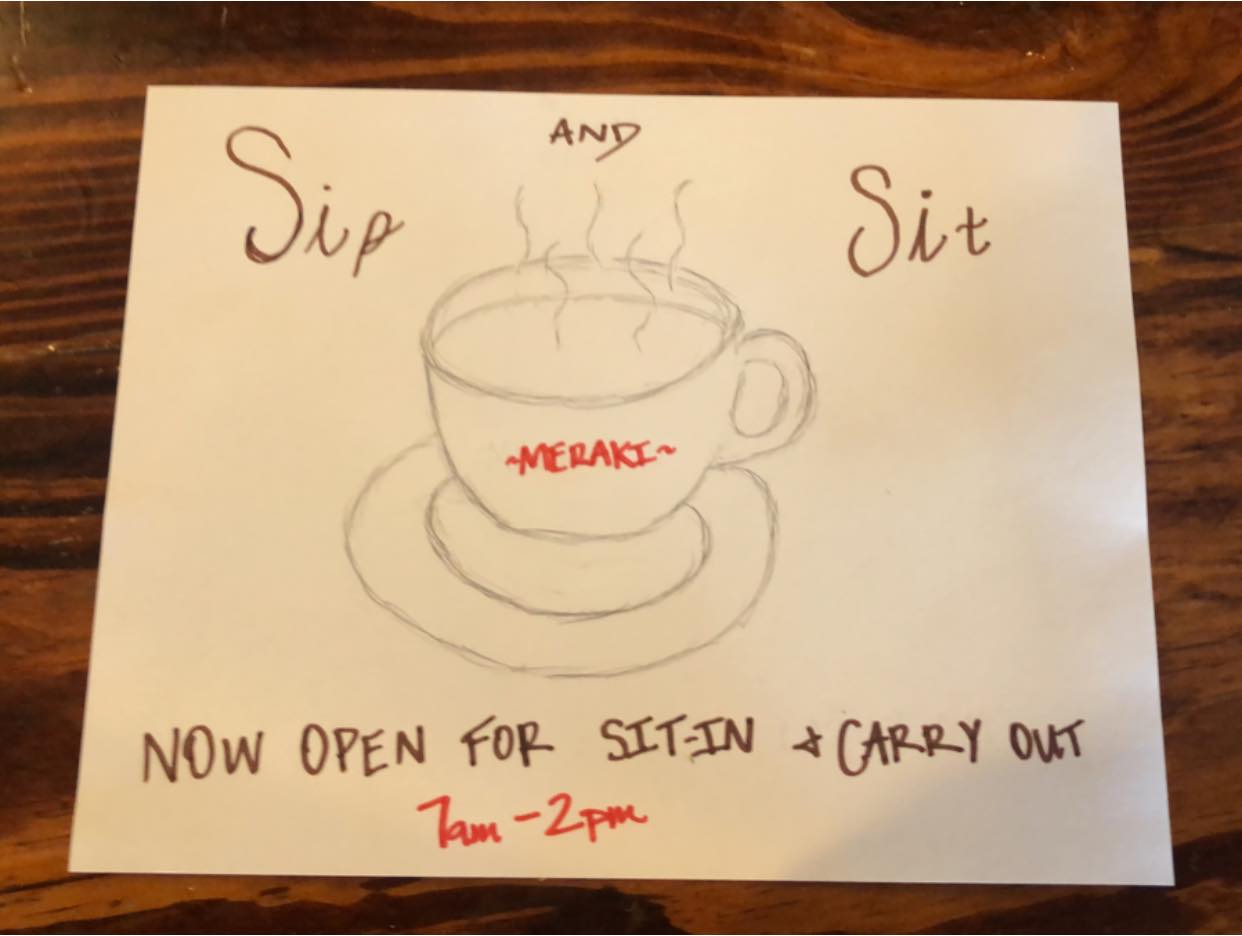 Sip AND Sit
~MERAKI~
NOW OPEN FOR SIT-IN & CARRY OUT
7am - 2pm